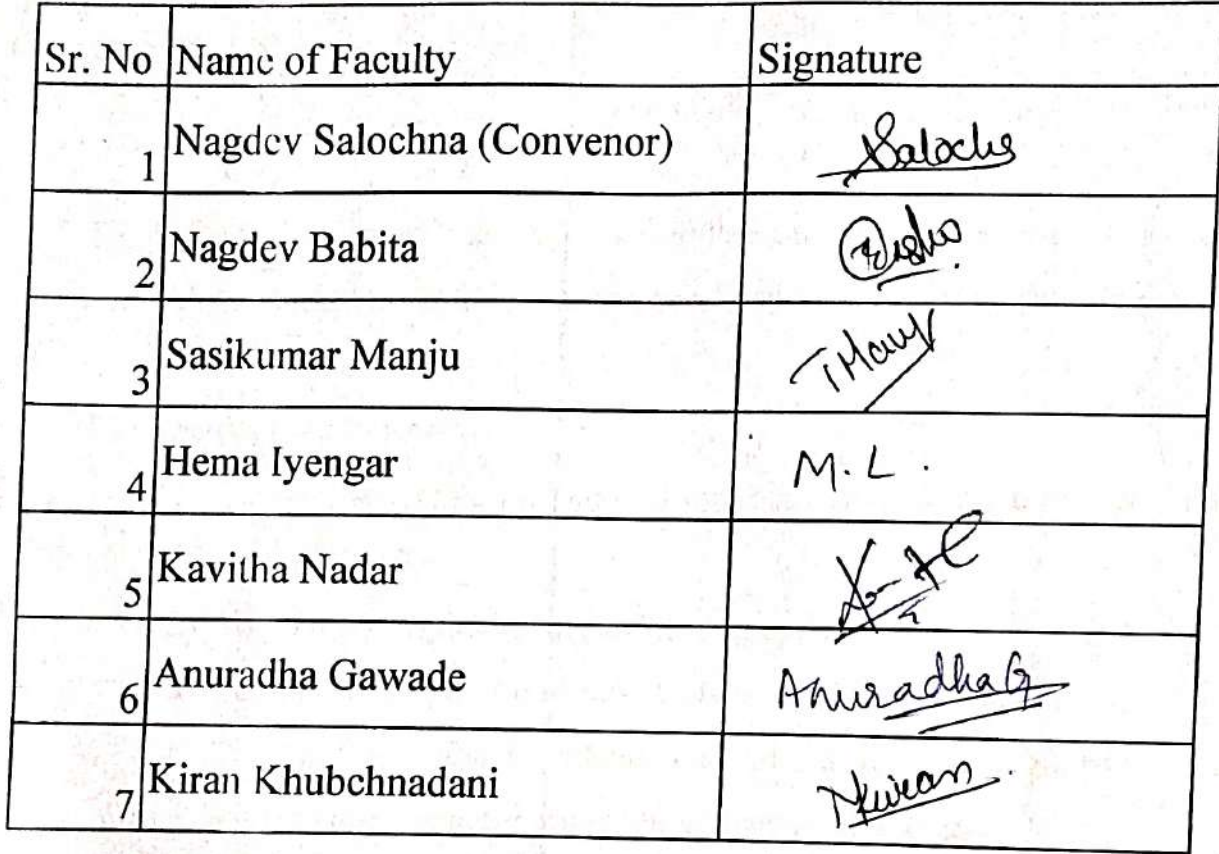 Sr. No Name of Faculty Signature
1 Nagdev Salochna (Convenor) Salochs
2 Nagdev Babita
3 Sasikumar Manju
4 Hema Iyengar M. L.
5 Kavitha Nadar
6 Anuradha Gawade AnuradhaG
7 Kiran Khubchnadani Nkiran.